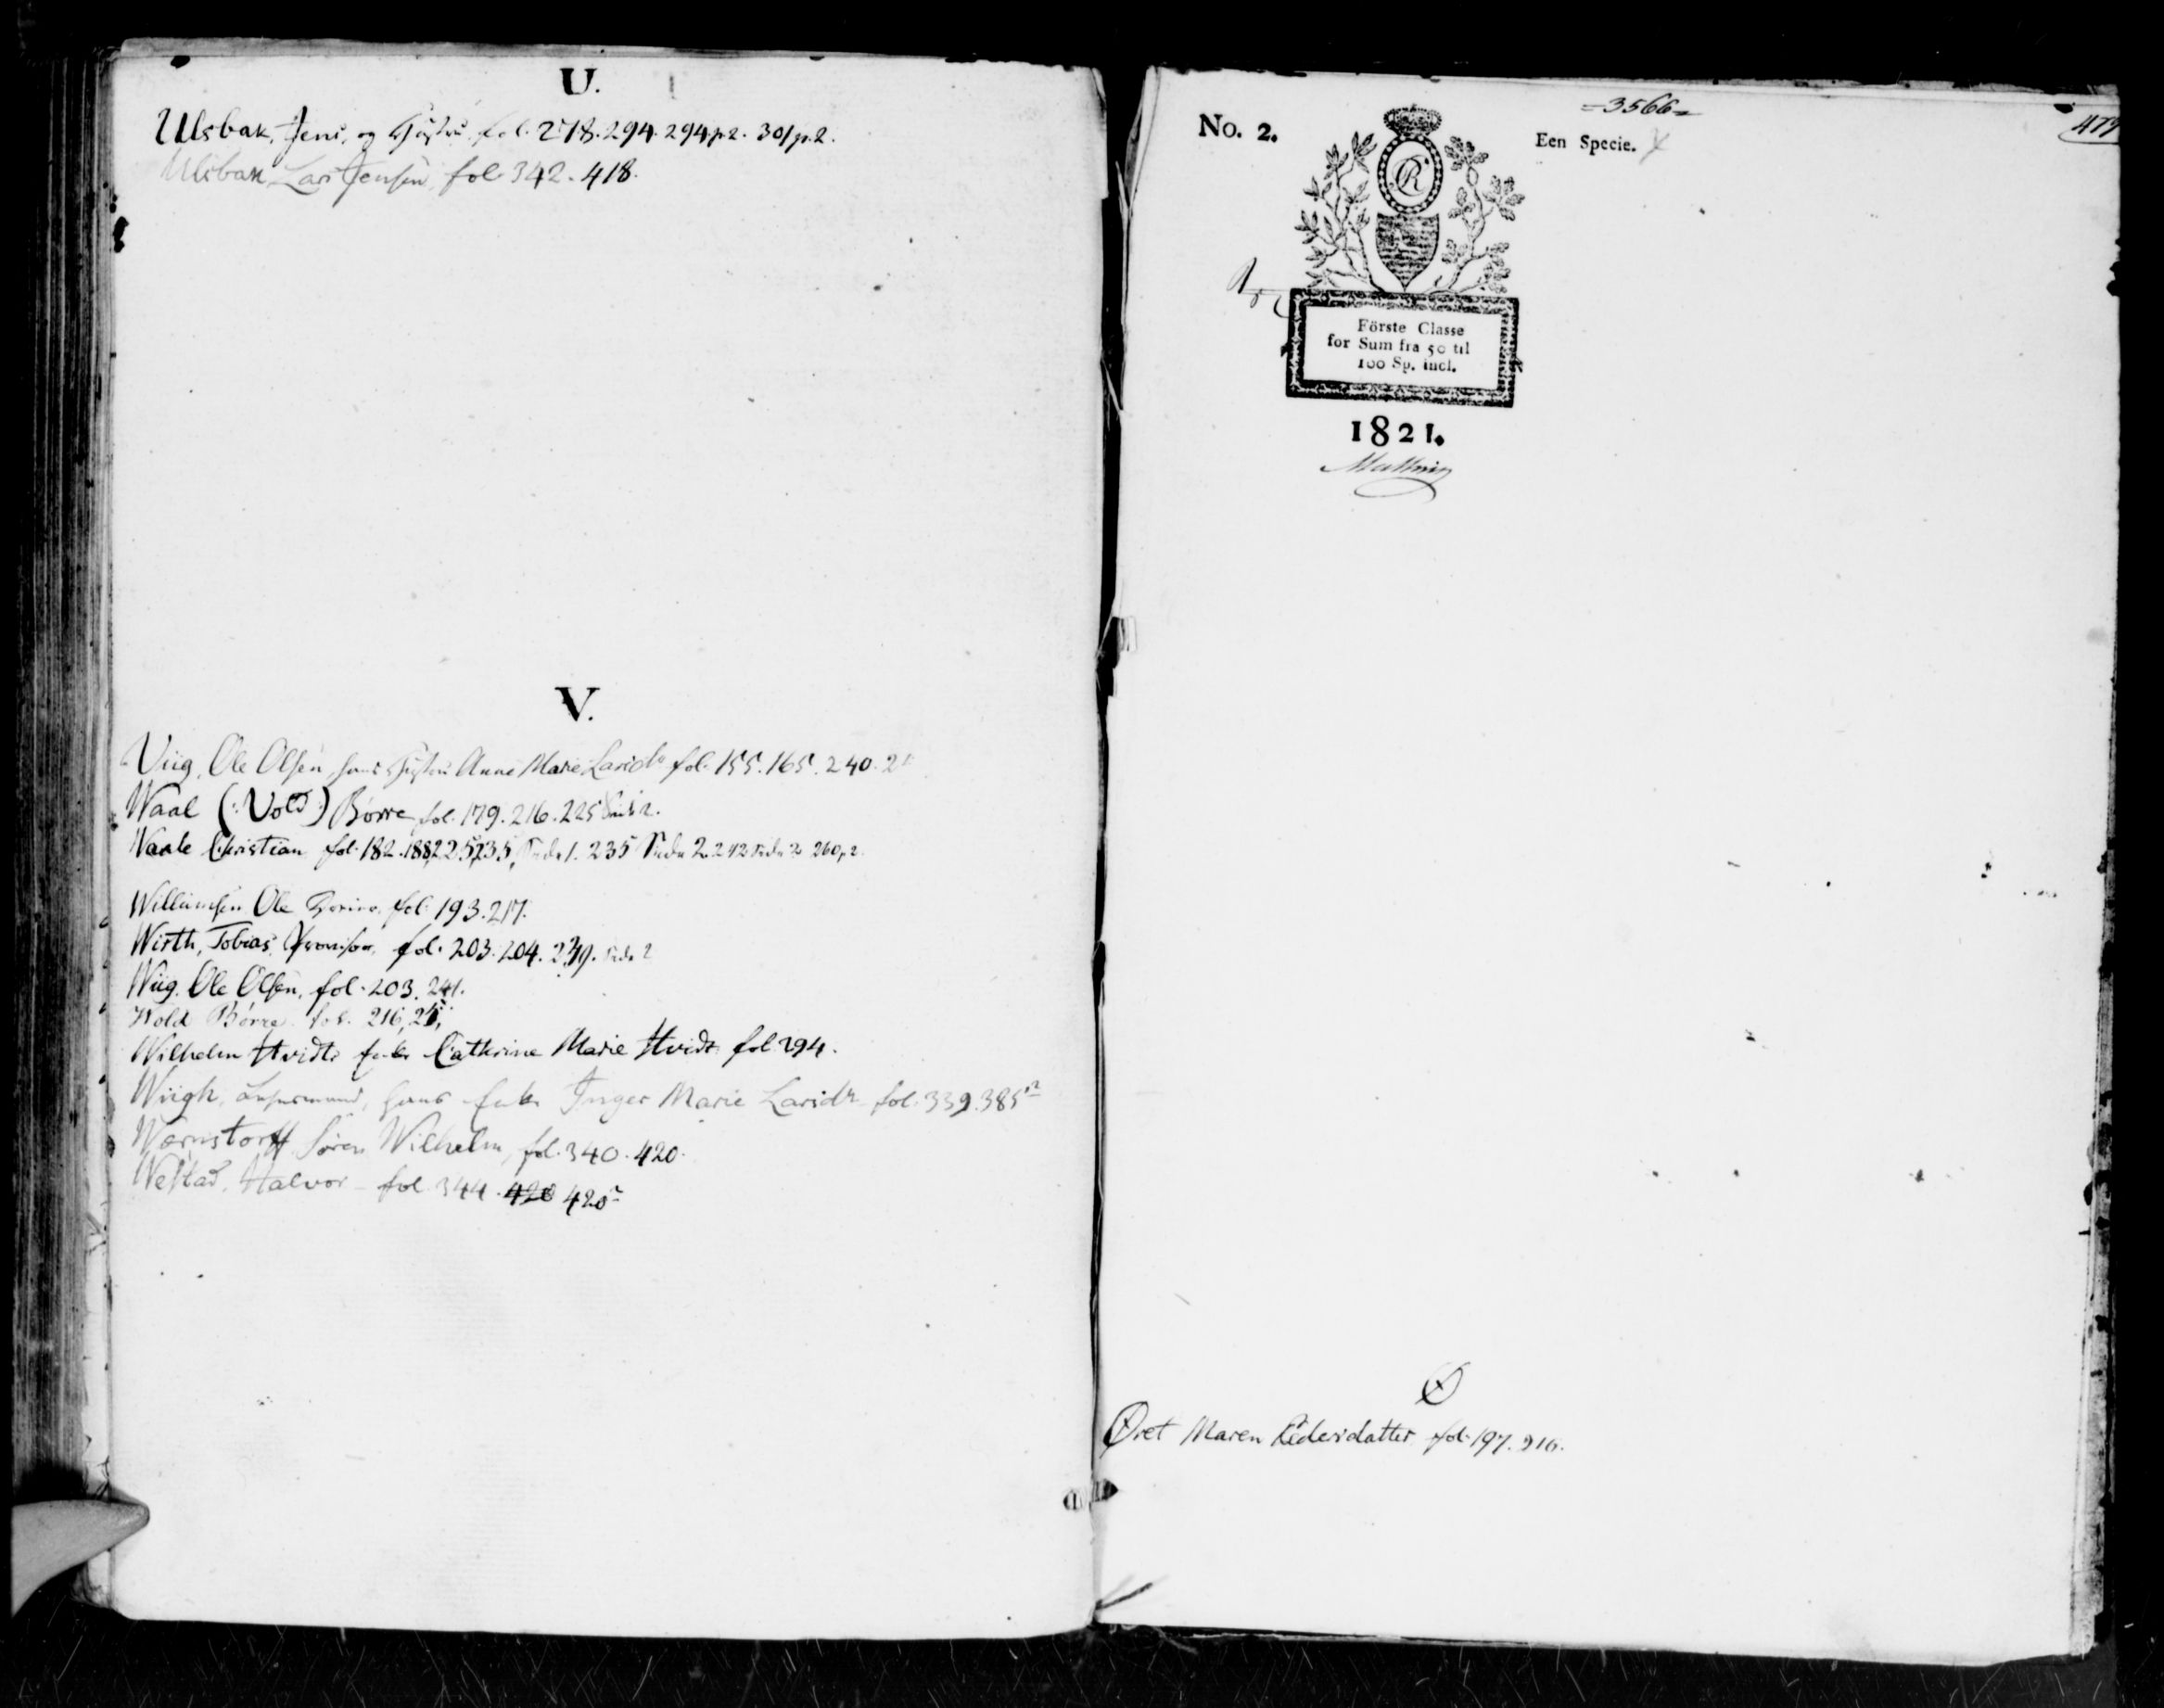 U.
Ulsbak, Jens, og Hustru fol. 278. 294. 294 p. 2. 301 p. 2.
Ulsbak Lars Jensen, fol. 342. 418.
V.
Viig, Ole Olsen, hans Hustru Anne Marie Larsdr fol. 155. 165. 240.
Waal (: Vold :) Börre fol. 179. 216. 225 Side 2.
Waale Christian fol. 182. 188, 225, 235, Side 1. 235 Side 2. 242 Side 2 260 p 2.
Willumsen Ole fol. 193. 217.
Wirth, Tobias, Provisor, fol. 203. 204. 239. Side 2
Wiig. Ole Olsen, fol. 203. 241.
Wold Börre. fol. 216,
Wilhelm Hvidts Enke Cathrine Marie Hvidt fol. 294.
Wiigh, Lehnsmand, hans Enke Inger Marie Larsdr fol. 339. 385 2
Wærnstorff Sören Wilhelm, fol. 340. 420.
Westad, Halvor - fol. 344. 420 420 2
=3566=
477
No. 2.
Een Specie.
CR
Förste Classe
for Sum fra 50 til
100 Sp. incl.
1821.
Ø
Øret Maren Pedersdatter fol. 197. 216.